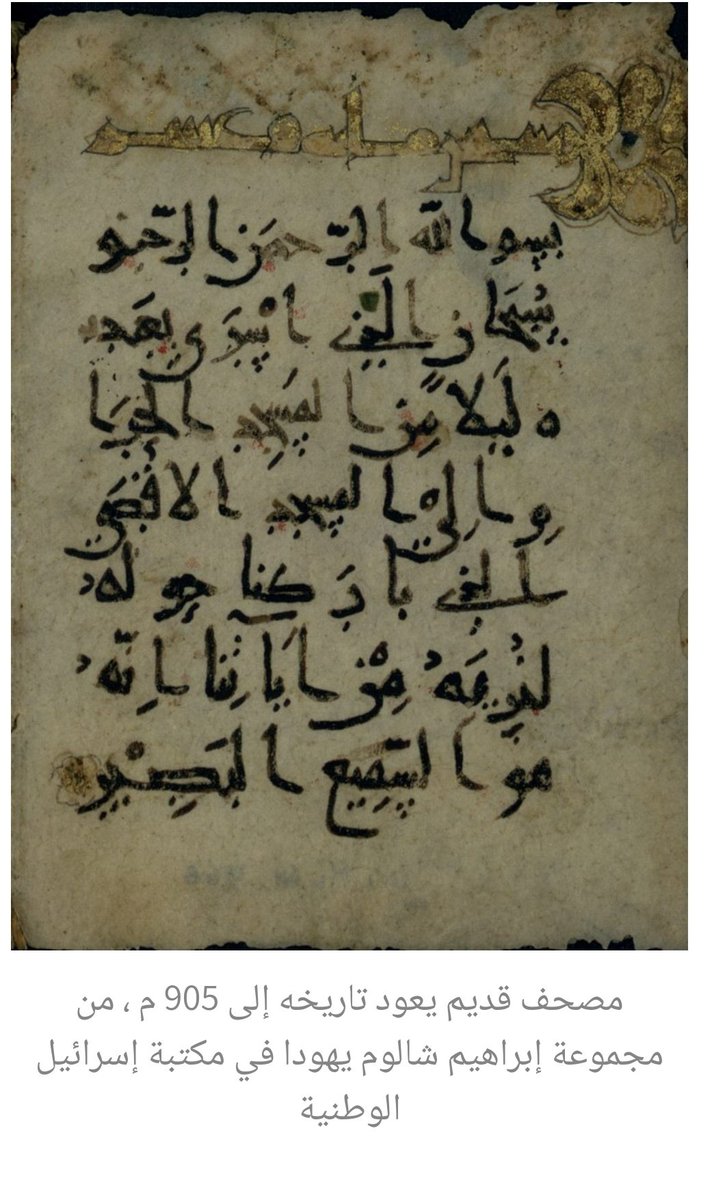 مائة وعشر
بِسمِ اللّه الرّحمَن الرّحيم
سُبحَان الَّذِي اسرَى بِعَبد
ه لَيلًا مِّن المَسجِد الحَرَا
مِ الِى المَسجِد الاقصَى
الَّذِي بَارَكنا حَولَهُ
لِنُرِيَهُ مِن آيَاتِنا اِنّهُ
هوَ السَّمِيع البَصِير
مصحف قديم يعود تاريخه إلى 905 م ، من
مجموعة إبراهيم شالوم يهودا في مكتبة إسرائيل
الوطنية